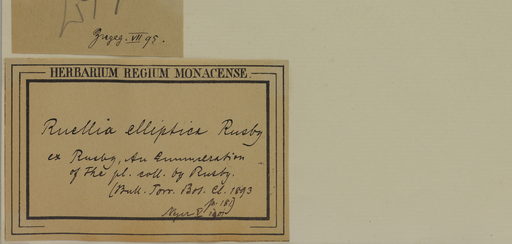 VII 95.
HERBARIUM REGIUM MONACENSE.
Ruellia elliptica Rusby
ex Rusby, An Enumeration
of the pl. coll. by Rusby.
(Bull. Torr. Bot. Cl. 1893
p. 181)